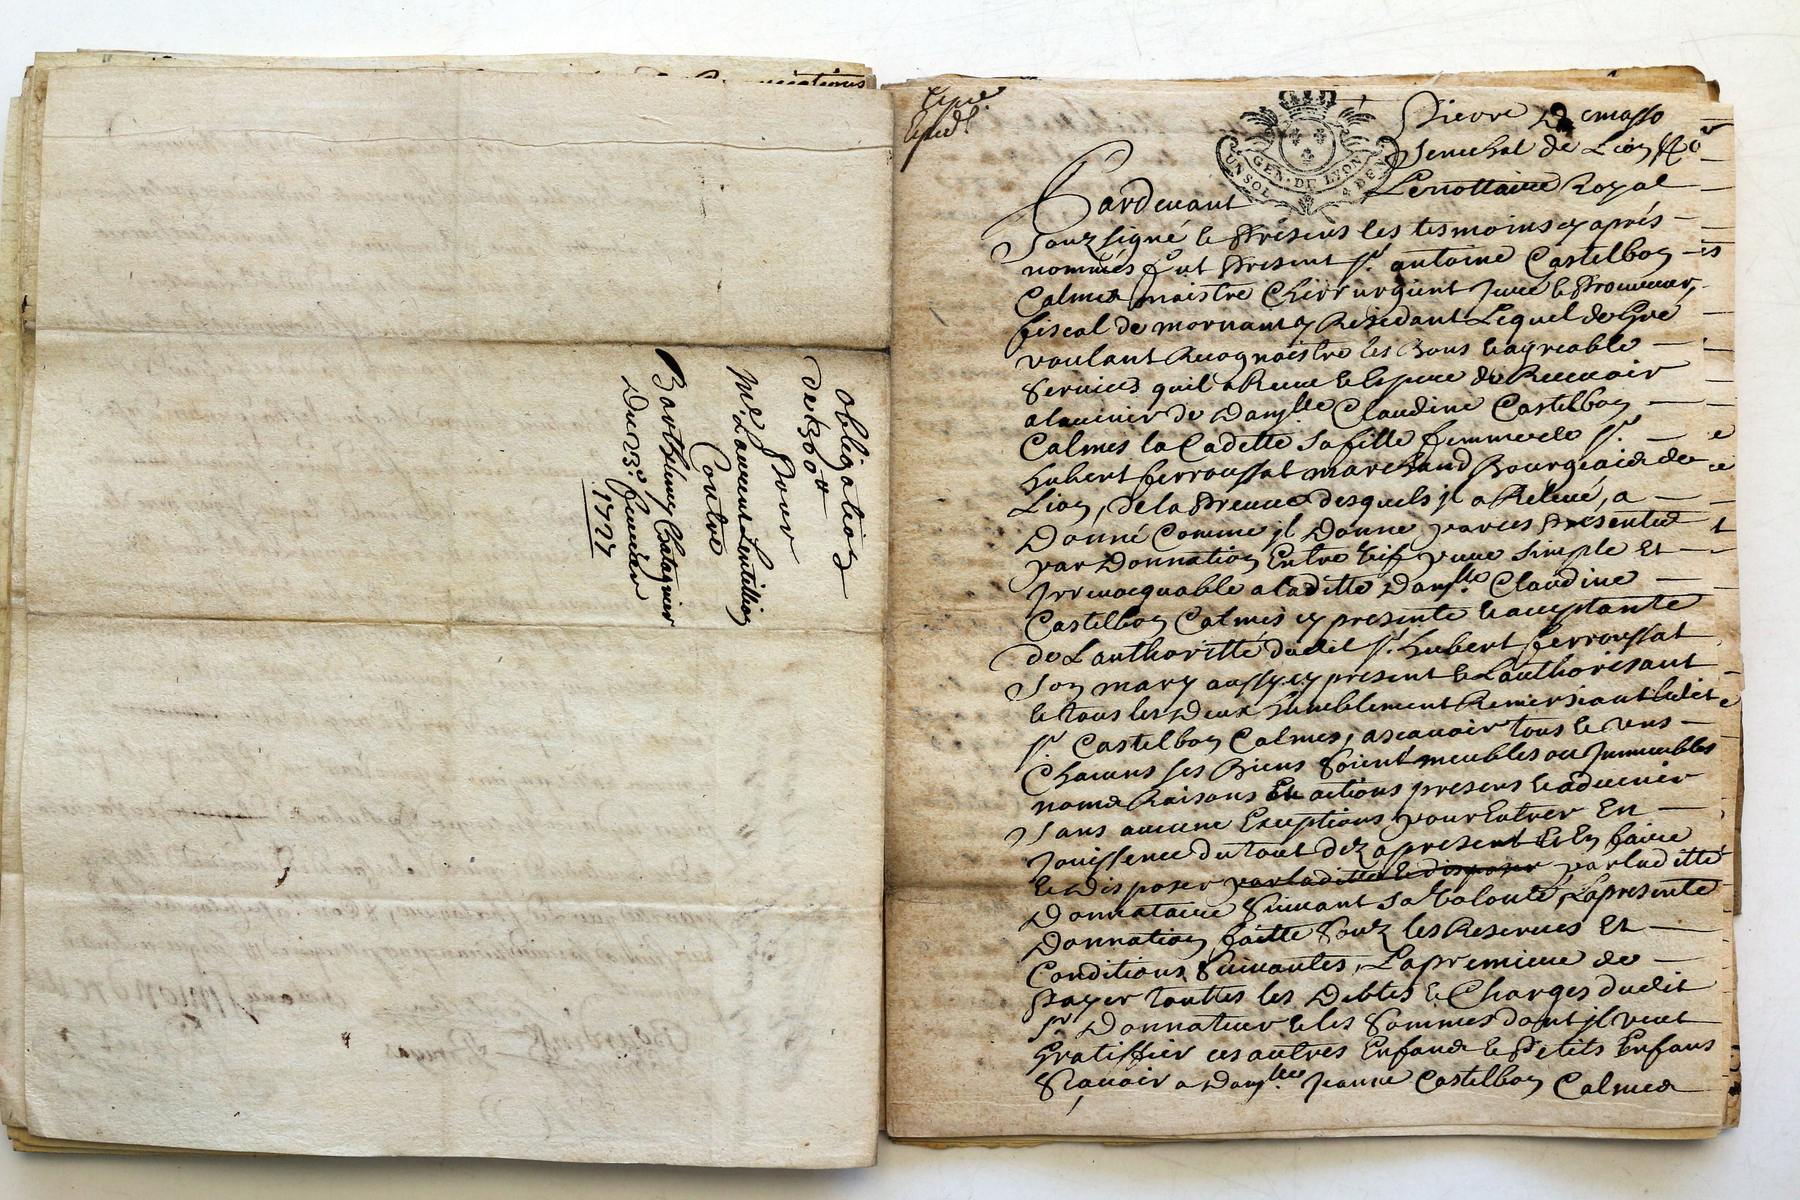 Obligation
de 360 ₶
Pour
Me Laurent Lentillion
Contre
Barthelemy Chatagnier
Du 23e feuvrier
1727
GEN. DE LYON
UN SOL 4 DEN
Pierre
Senechal de Lion
Pardevant Le nottaire Royal
Souzsigné & Présens les tesmoins cy aprés
nommés fut Present Sr. antoine Castelbon
Calmes maistre Chirrurgient Juré & Procureur
fiscal de mornant y Residant Lequel de Gré
voulant Recognoistre les Bons & agreable
Services quil a Receu & Espere de Recevoir
aladvenir de Damlle Claudine Castelbon
Calmes la Cadette Sa fille femme de Sr.
hubert ferroussat marchand Bourgeois de
Lion, de la Preuve desquels jl a Relevé, a
Donné Comme jl Donne par ces Presentes
par Donnation Entre Vif pure Simple Et
Jrrevocquable a laditte Damlle. Claudine
Castelbon Calmes cy presente & acceptante
de Lauthoritté dudit Sr. hubert ferroussat
Son mary aussy cy present & Lauthorisant
& tous les Deux humblement Remersiant ledit
Sr. Castelbon Calmes, ascavoir tous & uns
Chacuns ses Biens Soient meubles ou Jmmeubles
noms Raisons Et actions presens & advenir
Sans aucune Exceptions pour Entrer En
Jouissence du tout dez a present Et En faire
& Disposer par laditte & disposer par laditte
Donnataire Suivant Sa Volonté, La presente
Donnation faitte Souz les Reserves Et
Conditions Suivantes, La premiere de
Payer touttes les Debtes & Charges dudit
Sr Donnateur & les Sommes dont jl veut
Gratiffier ces autres Enfans & Petits Enfans
Scavoir a Damlle. Jeanne Castelbon Calmes